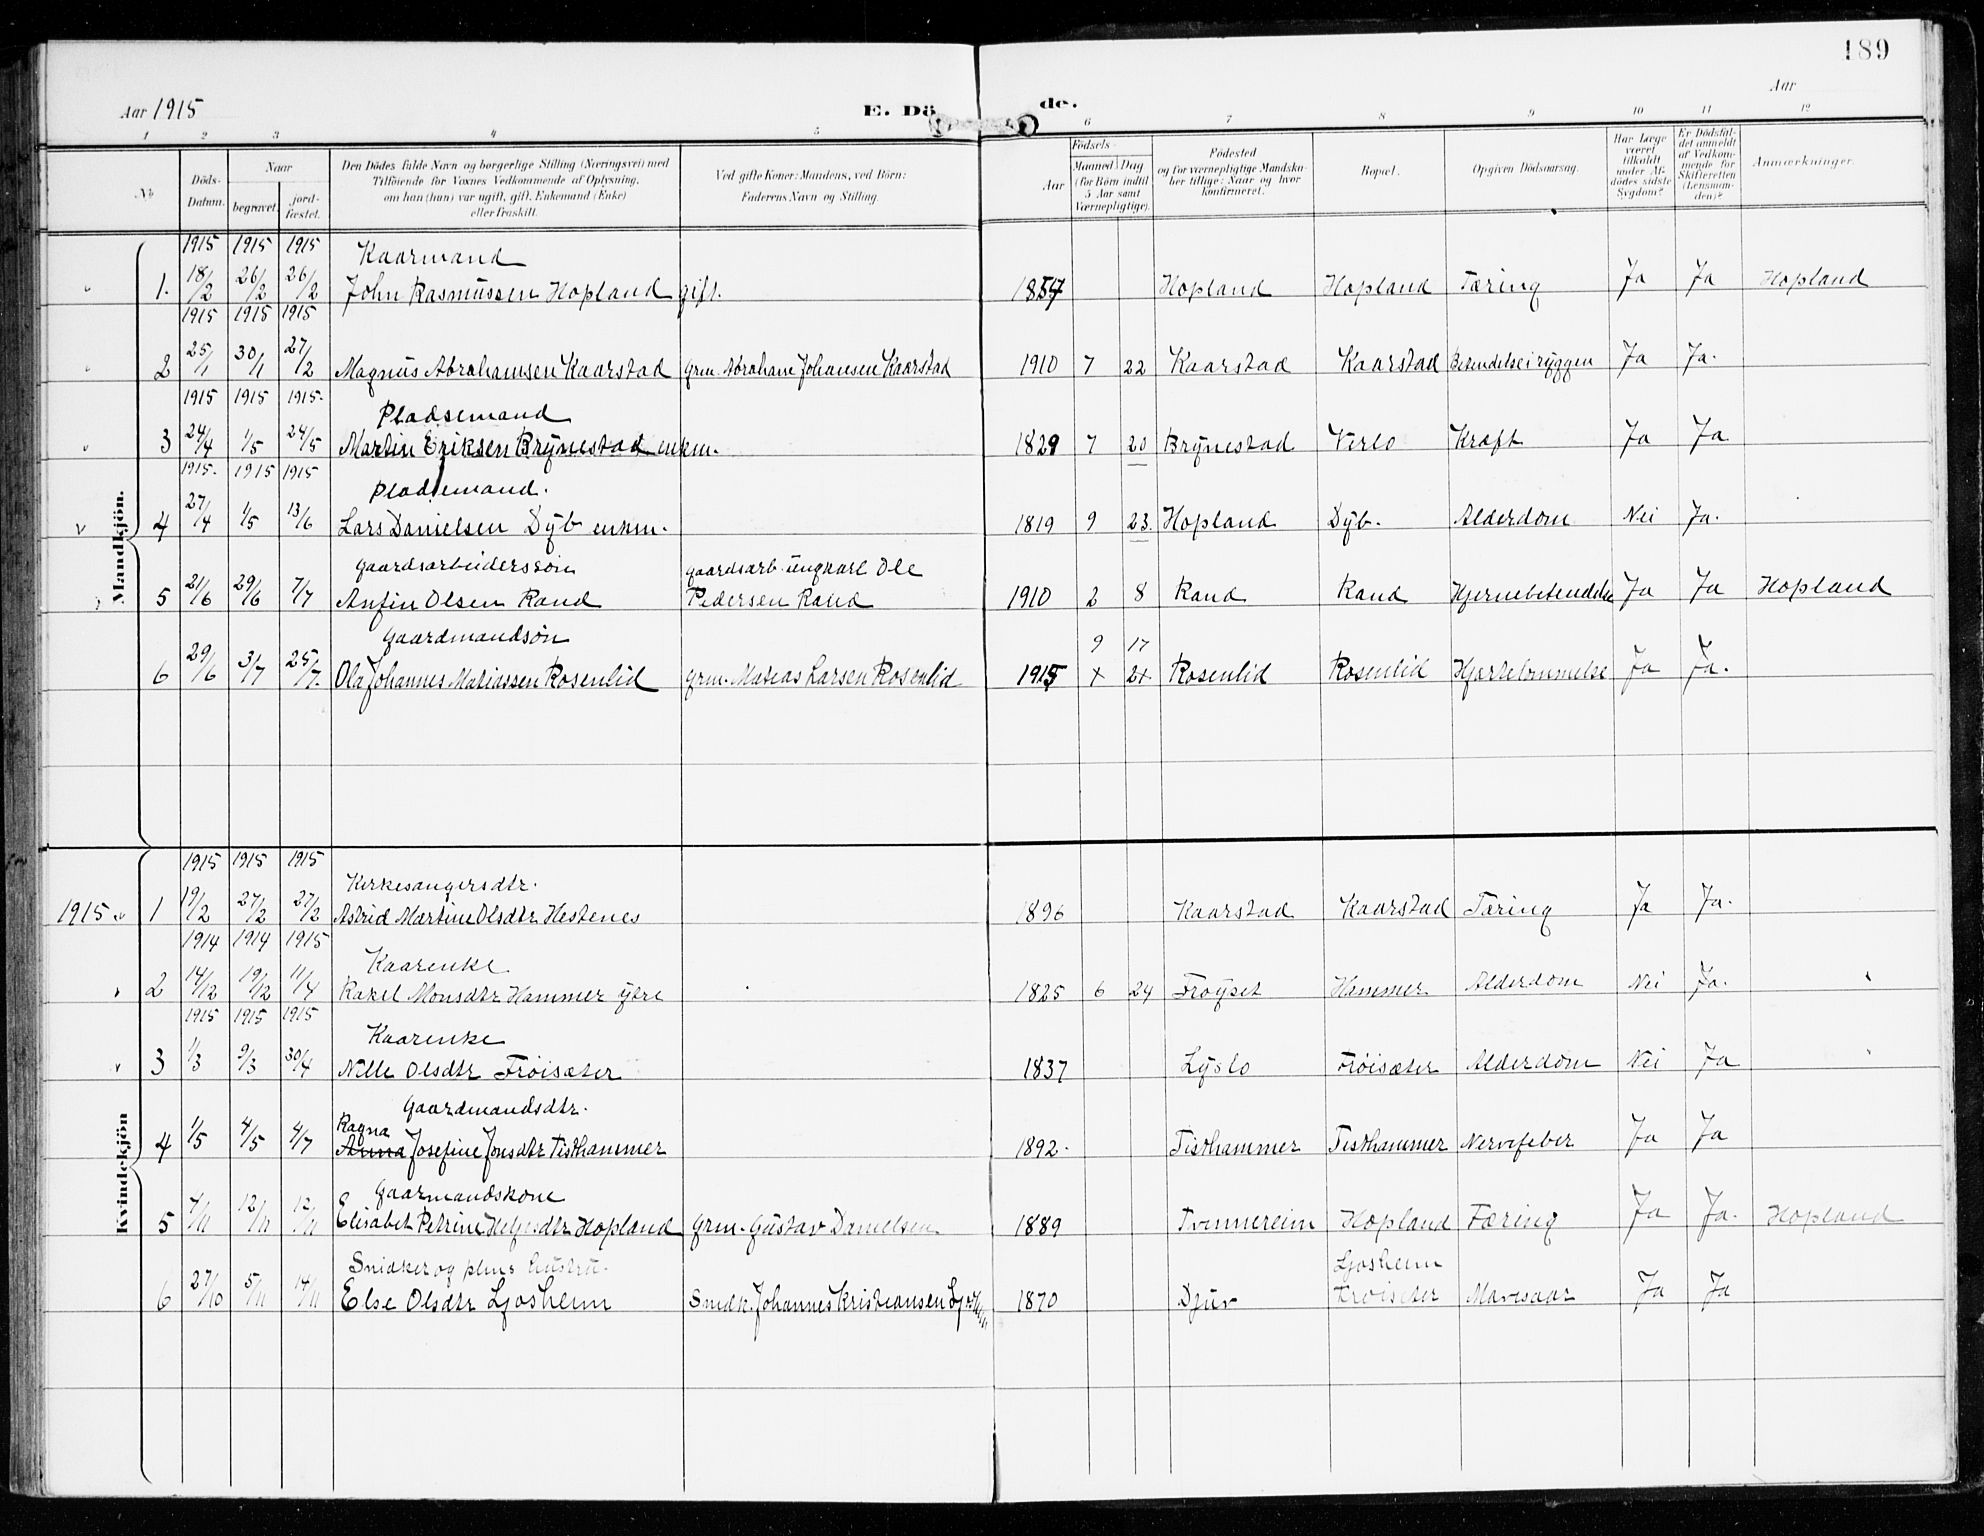 189
Aar 1915
E. Dö de.
Aar
1 2 3 4 5 6 7 8 9 10 11 12
No
Döds-Datum.
Naar
begravet.
jord-fæstet.
Den Dödes fulde Navn og borgerlige Stilling (Næringsvei) med
Tilföiende for Voxnes Vedkommende af Oplysning,
om han (hun) var ugift, gift, Enkemand (Enke)
eller fraskilt.
Ved gifte Koner: Mandens, ved Börn:
Faderens Navn og Stilling.
Födsels-
Aar
Maaned Dag
(for Börn indtil
5 Aar samt
Værnepligtige).
Födested
og for værnepligtige Mandska-
ber tillige: Naar og hvor
konfirmeret.
Bopæl.
Opgiven Dödsaarsag.
Har Læge
været
tilkaldt
under Af-
dödes sidste
Sygdom?
Er Dödsfal-
det anmeldt
af Vedkom-
mende for
Skifteretten
(Lensman-
den)?
Anmærkninger.
Mandkjön.
1915 1915 1915 Kaarmand
1. 18/2 26/2 26/2 John Rasmussen Hopland gift. 1857 Hopland Hopland Tæring Ja Ja Hopland
1915 1915 1915
2 25/1 30/1 27/2 Magnus Abrahamsen Kaarstad grm. Abraham Johansen Kaarstad 1910 7 22 Kaarstad Kaarstad Betendelse i ryggen Ja Ja.
1915 1915 1915. Pladsemand
3 24/4 1/5 24/5 Martin Eriksen Brynestad enkm. 1829 7 20 Brynestad Verlo Kræft Ja Ja
1915. 1915 1915 Pladsemand.
4 27/4 1/5 13/6 Lars Danielsen Dyb enkm. 1819 9 23. Hopland Dyb. Alderdom Nei Ja.
Gaardsarbeiderssøn gaardsarb. ungkarl Ole
5 21/6 29/6 7/7 Anfin Olsen Rand Pedersen Rand 1910 2 8 Rand Rand Hjernebetendelse Ja Ja Hopland
Gaardmandsøn 9 17
6 29/6 3/7 25/7. Ola Johannes Matiassen Rosenlid grm. Matias Larsen Rosenlid 1915 x 2x Rosenlid Rosenlid Hjertelammelse Ja Ja.
Kvindekjön
1915 1915 1915 Kirkesangersdtr.
1915 1 19/2 27/2 27/2 Astrid Martine Olsdtr Hestenes 1896 Kaarstad Kaarstad Tæring Ja Ja.
1914 1914 1915 Kaarenke
2 14/12 19/12 11/4 Rakel Monsdtr Hammer ytre 1825 6 24 Frøyset Hammer Alderdom Nei Ja.
1915 1915 1915 Kaarenke
3 1/3 9/3 30/4 Nille Olsdtr Frøisæter 1837 Lyslo Frøisæter Alderdom Nei Ja
Gaardmandsdtr.
Ragna
4 1/5 4/5 4/7 Anna Josefine Jonsdtr Tisthammer 1892. Tisthammer Tisthammer Nervefeber Ja Ja
Gaarmandskone
5 7/11 12/11 12/11 Elisabet Petrine Helgesdtr Hopland grm. Gustav Danielsen 1889 Tvinnereim Hopland Tæring Ja Ja. Hopland
Snidker og plms hustru. Ljosheim
6 27/10 5/11 14/11 Else Olsdtr Ljosheim Snidk. Johannes Kristiansen 1870 Djuv Frøisæter Mavesaar Ja Ja